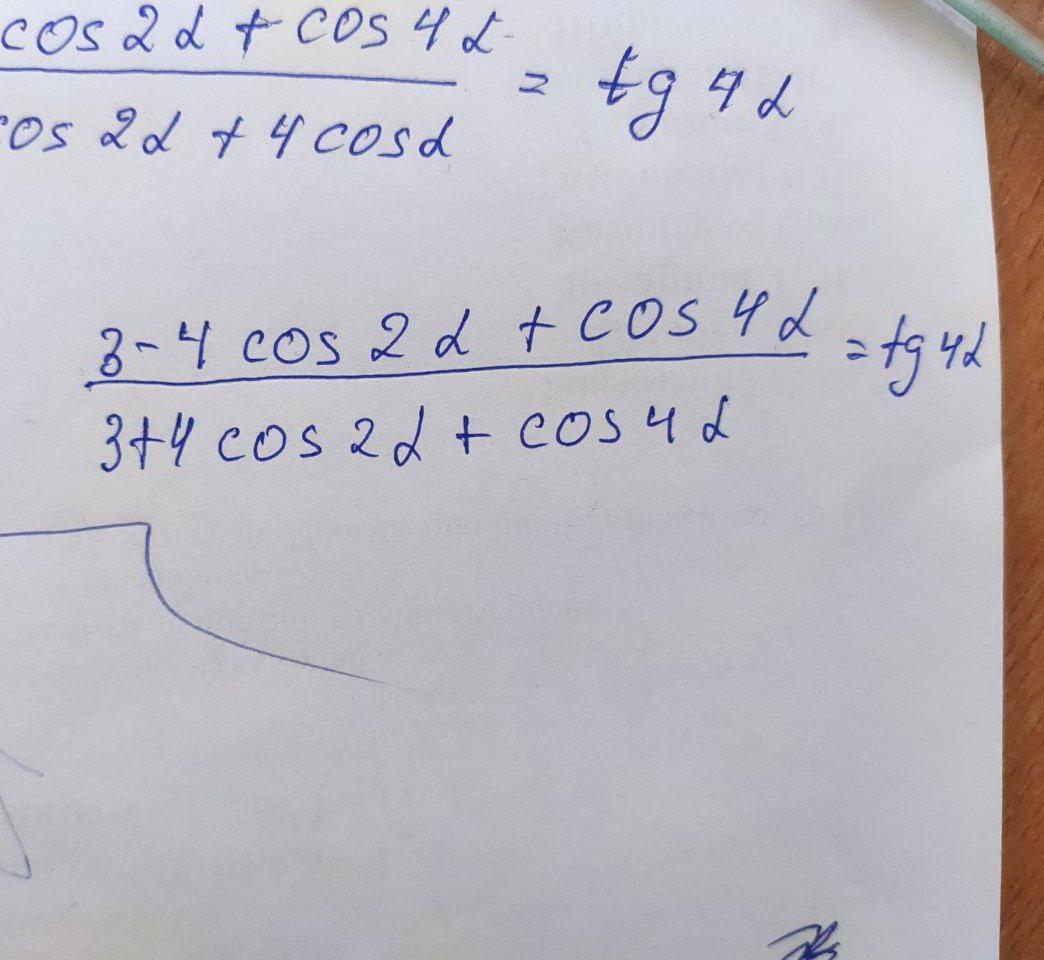 cos 2α + cos 4α
cos 2α + 4 cos α = tg 4α
3 - 4 cos 2α + cos 4α
3 + 4 cos 2α + cos 4α = tg 4α